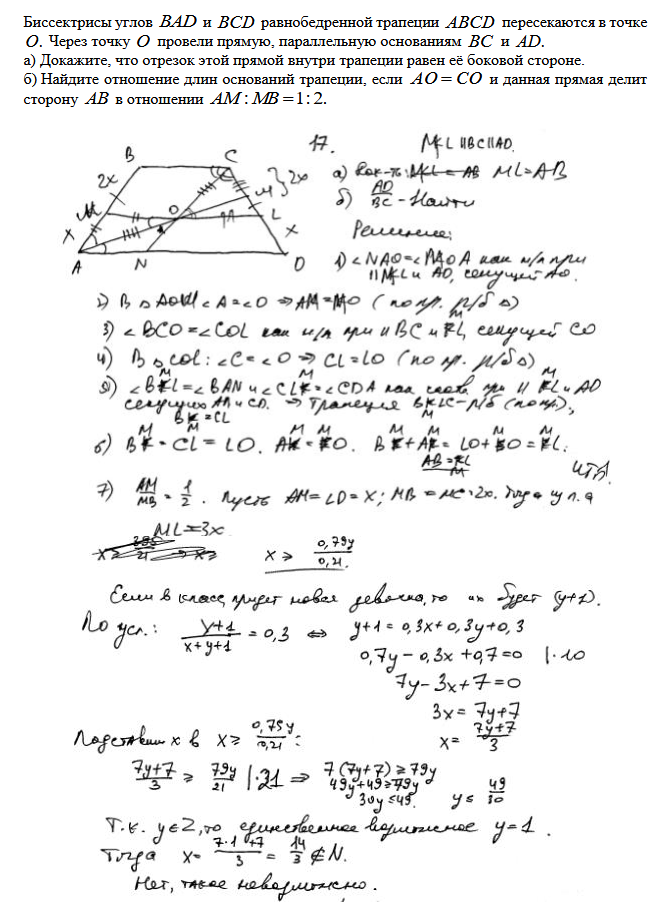 Биссектрисы углов BAD и BCD равнобедренной трапеции ABCD пересекаются в точке
O. Через точку O провели прямую, параллельную основаниям BC и AD.
а) Докажите, что отрезок этой прямой внутри трапеции равен её боковой стороне.
б) Найдите отношение длин оснований трапеции, если AO = CO и данная прямая делит
сторону AB в отношении AM : MB = 1 : 2.
17. ML || BC || AD.
а) Док-ть: ML = AB
б) AD/BC - Найти
Решение:
B C 2x 2x M O L x x A N D
1) ∠NAO = ∠MOA как н/л при
|| ML и AD, секущей AO.
2) В △AOM ∠A = ∠O ⇒ AM = MO (по пр. р/б △)
3) ∠BCO = ∠COL как н/л при || BC и ML, секущей CO
4) В △COL: ∠C = ∠O ⇒ CL = LO (по пр. р/б △)
5) ∠BML = ∠BAN и ∠CLM = ∠CDA как соотв. при || ML и AD
секущих AB и CD. ⇒ Трапеция BMLC - р/б (по пр.),
BM = CL
6) BM = CL = LO. AM = MO. BM + AM = LO + MO = ML.
AB = ML
ЧТД.
7) AM/MB = 1/2. Пусть AM = LD = x; MB = MC = 2x. Тогда из п. а
ML = 3x
x ≥ 0,79y/0,21.
Если в класс придет новая девочка, то их будет (y+1).
По усл.: (y+1)/(x+y+1) = 0,3 ⇔ y+1 = 0,3x + 0,3y + 0,3
0,7y − 0,3x + 0,7 = 0 |·10
7y − 3x + 7 = 0
3x = 7y + 7
x = (7y+7)/3
Подставим x в x ≥ 0,79y/0,21:
(7y+7)/3 ≥ 79y/21 |·21 ⇒ 7(7y+7) ≥ 79y
49y + 49 ≥ 79y
30y ≤ 49. y ≤ 49/30
Т.к. y ∈ Z, то единственное возможное y = 1.
Тогда x = (7·1+7)/3 = 14/3 ∉ N.
Нет, такое невозможно.